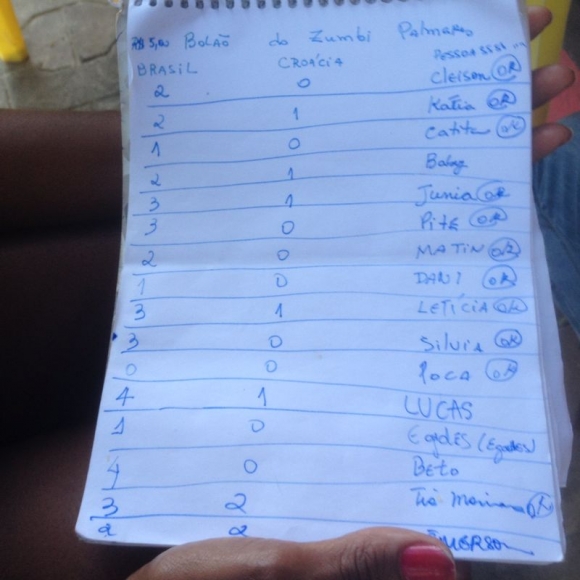 Bolão do Zumbi Palmares
BRASIL CROÁCIA PESSOAS
2 0 Cleison OK
2 1 Katia OK
1 0 Catita OK
2 1
3 1 Junia OK
3 0 OK
2 0 MATIN OK
1 0 DANI OK
3 1 LETÍCIA OK
3 0 Silvia OK
0 0 OK
4 1 LUCAS
1 0 Egdes
4 0 Beto
3 2 OK
2 2 EMERSON